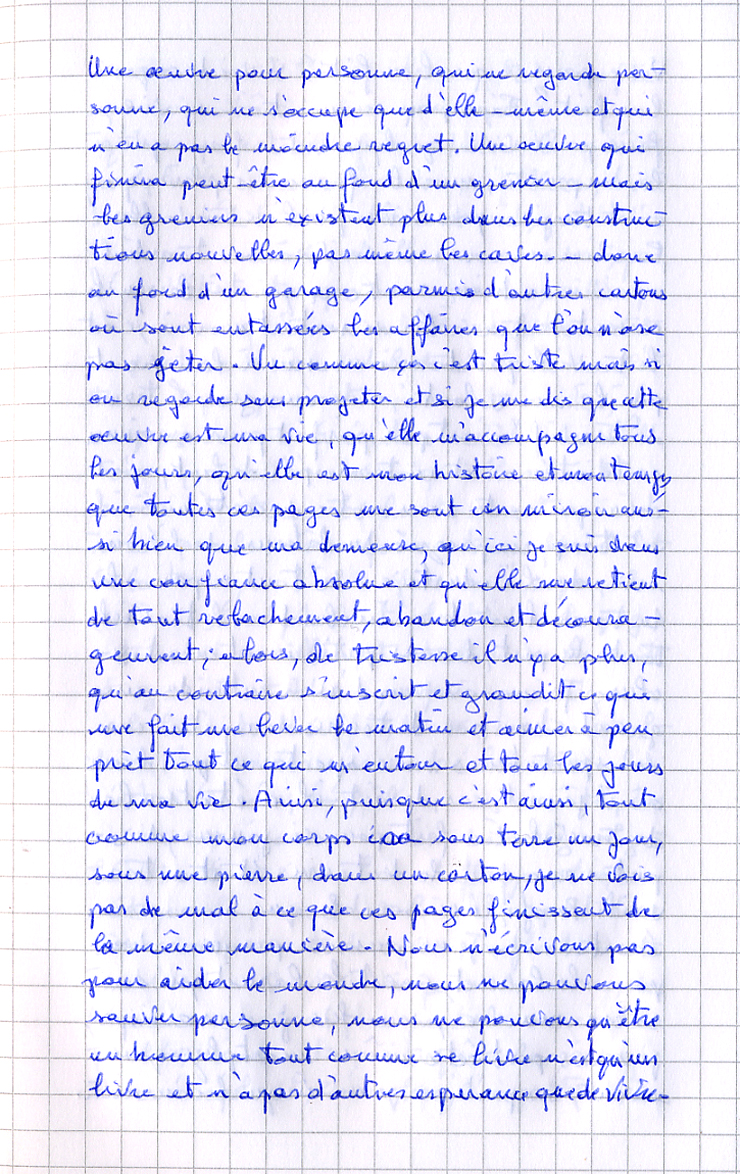 Une œuvre pour personne, qui ne regarde per-
sonne, qui ne s'occupe que d'elle-même et qui
n'en a pas le moindre regret. Une œuvre qui
finira peut-être au fond d'un grenier - mais
les greniers n'existent plus dans les construc-
tions nouvelles, pas même les caves - donc
au fond d'un garage, parmis d'autres cartons
où sont entassées les affaires que l'on n'ose
pas jeter. Vu comme ça c'est triste mais si
on regarde sans projeter et si je me dis que cette
œuvre est ma vie, qu'elle m'accompagne tous
les jours, qu'elle est mon histoire et mon temps,
que toutes ces pages me sont un miroir aus-
si bien que ma demeure, qu'ici je suis dans
une confiance absolue et qu'elle me retient
de tout relachement, abandon et découra-
gement; alors, de tristesse il n'y a plus,
qu'au contraire s'inscrit et grandit ce qui
me fait me lever le matin et aimer à peu
prêt tout ce qui m'entoure et tous les jours
de ma vie. Ainsi, puisque c'est ainsi, tout
comme mon corps ira sous terre un jour,
sous une pierre, dans un carton, je ne vois
pas de mal à ce que ces pages finissent de
la même manière. Nous n'écrivons pas
pour aider le monde, nous ne pouvons
sauver personne, nous ne pouvons qu'être
un homme tout comme ce livre n'est qu'un
livre et n'a pas d'autres esperance que de vivre.